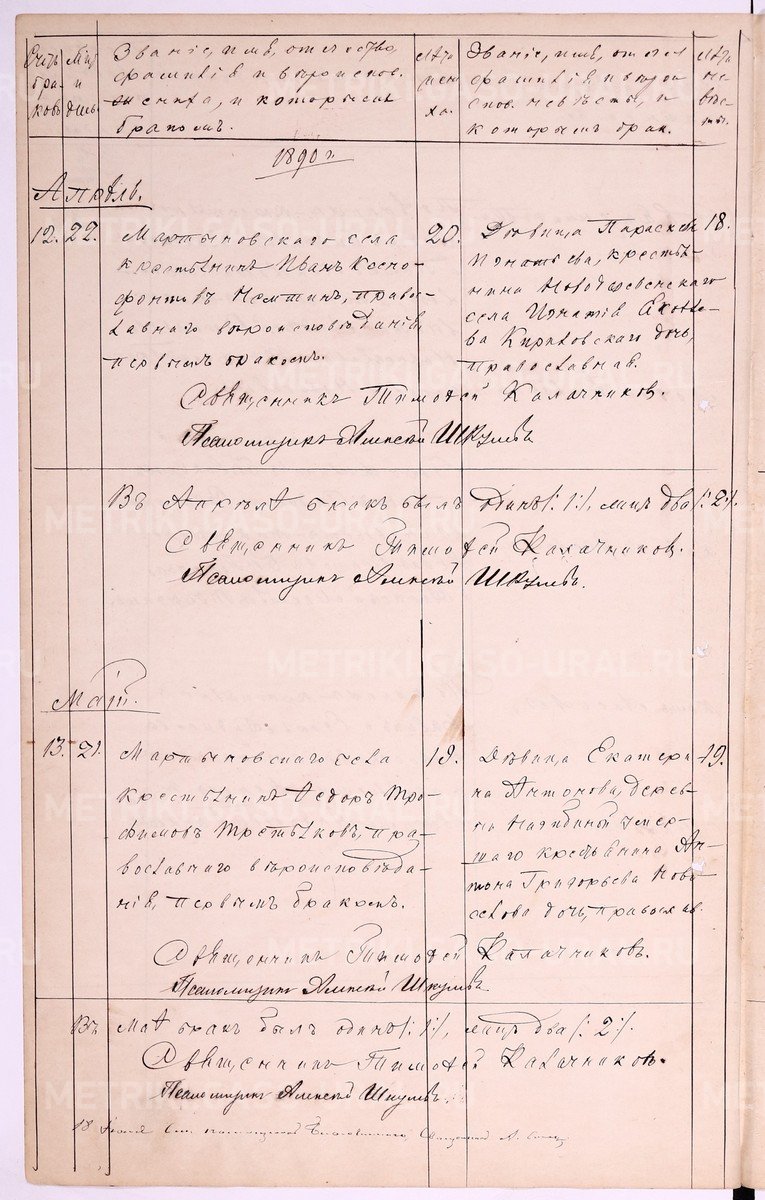 Счетъ браковъ
Мѣс. и день.
Званіе, имя, отчество
фамилія и вѣроиспов.
жениха, и которымъ
бракомъ.
Лѣта жениха.
Званіе, имя, отчес.
фамилія и вѣрои
спов. невѣсты, и
которымъ брак.
Лѣта невѣсты.
1890 г
Апрѣль.
12. 22.
Мартыновскаго села
крестьянинъ Иванъ Ксено-
фонтовъ Немтинъ, право-
славнаго вѣроисповѣданія,
первымъ бракомъ.
20.
Дѣвица Параскева
Игнатьева, крестья-
нина
села Игнатія Яковле-
ва Кириловскаго дочь,
православная.
18.
Священникъ Тимофей Калачниковъ.
Псаломщикъ Алексѣй Шкулевъ
Въ Апрѣлѣ бракъ былъ одинъ /: 1 :/, лицъ два /: 2 :/.
Священникъ Тимофей Калачниковъ.
Псаломщикъ Алексѣй Шкулевъ.
Май.
13. 21.
Мартыновскаго села
крестьянинъ Ѳедоръ Тро-
фимовъ Третьяковъ, пра-
вославнаго вѣроисповѣда-
нія, первымъ бракомъ.
19.
Дѣвица Екатери
на Антонова, дерев-
ни умер-
шаго крестьянина Ан-
тона Григорьева
дочь, православ.
19.
Священникъ Тимофей Калачниковъ.
Псаломщикъ Алексѣй Шкулевъ
Въ Маѣ бракъ былъ одинъ /: 1 :/, лицъ два /: 2 :/.
Священникъ Тимофей Калачниковъ.
Псаломщикъ Алексѣй Шкулевъ.
18
METRIKI.GASO-URAL.RU